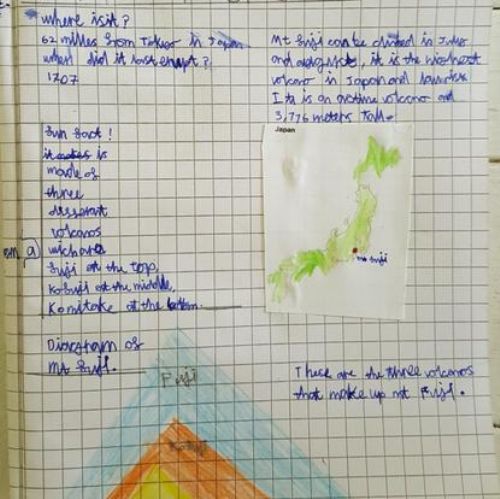 where is it?
62 miles from Tokeo in Japan
when did it last erupt?
1707
Mt Fuji can be climbed in July
and august, it is the highest
volcano in Japan and
It is an active volcano and
3,776 meters tall.
fun fact!
is
made of
three
different
volcanos
wich are
fuji at the top,
Kofuji at the middle,
Komitake at the bottom.
a)
Japan
mt fuji
Diagram of
mt fuji.
These are the three volcanos
that make up mt Fuji.
Fuji